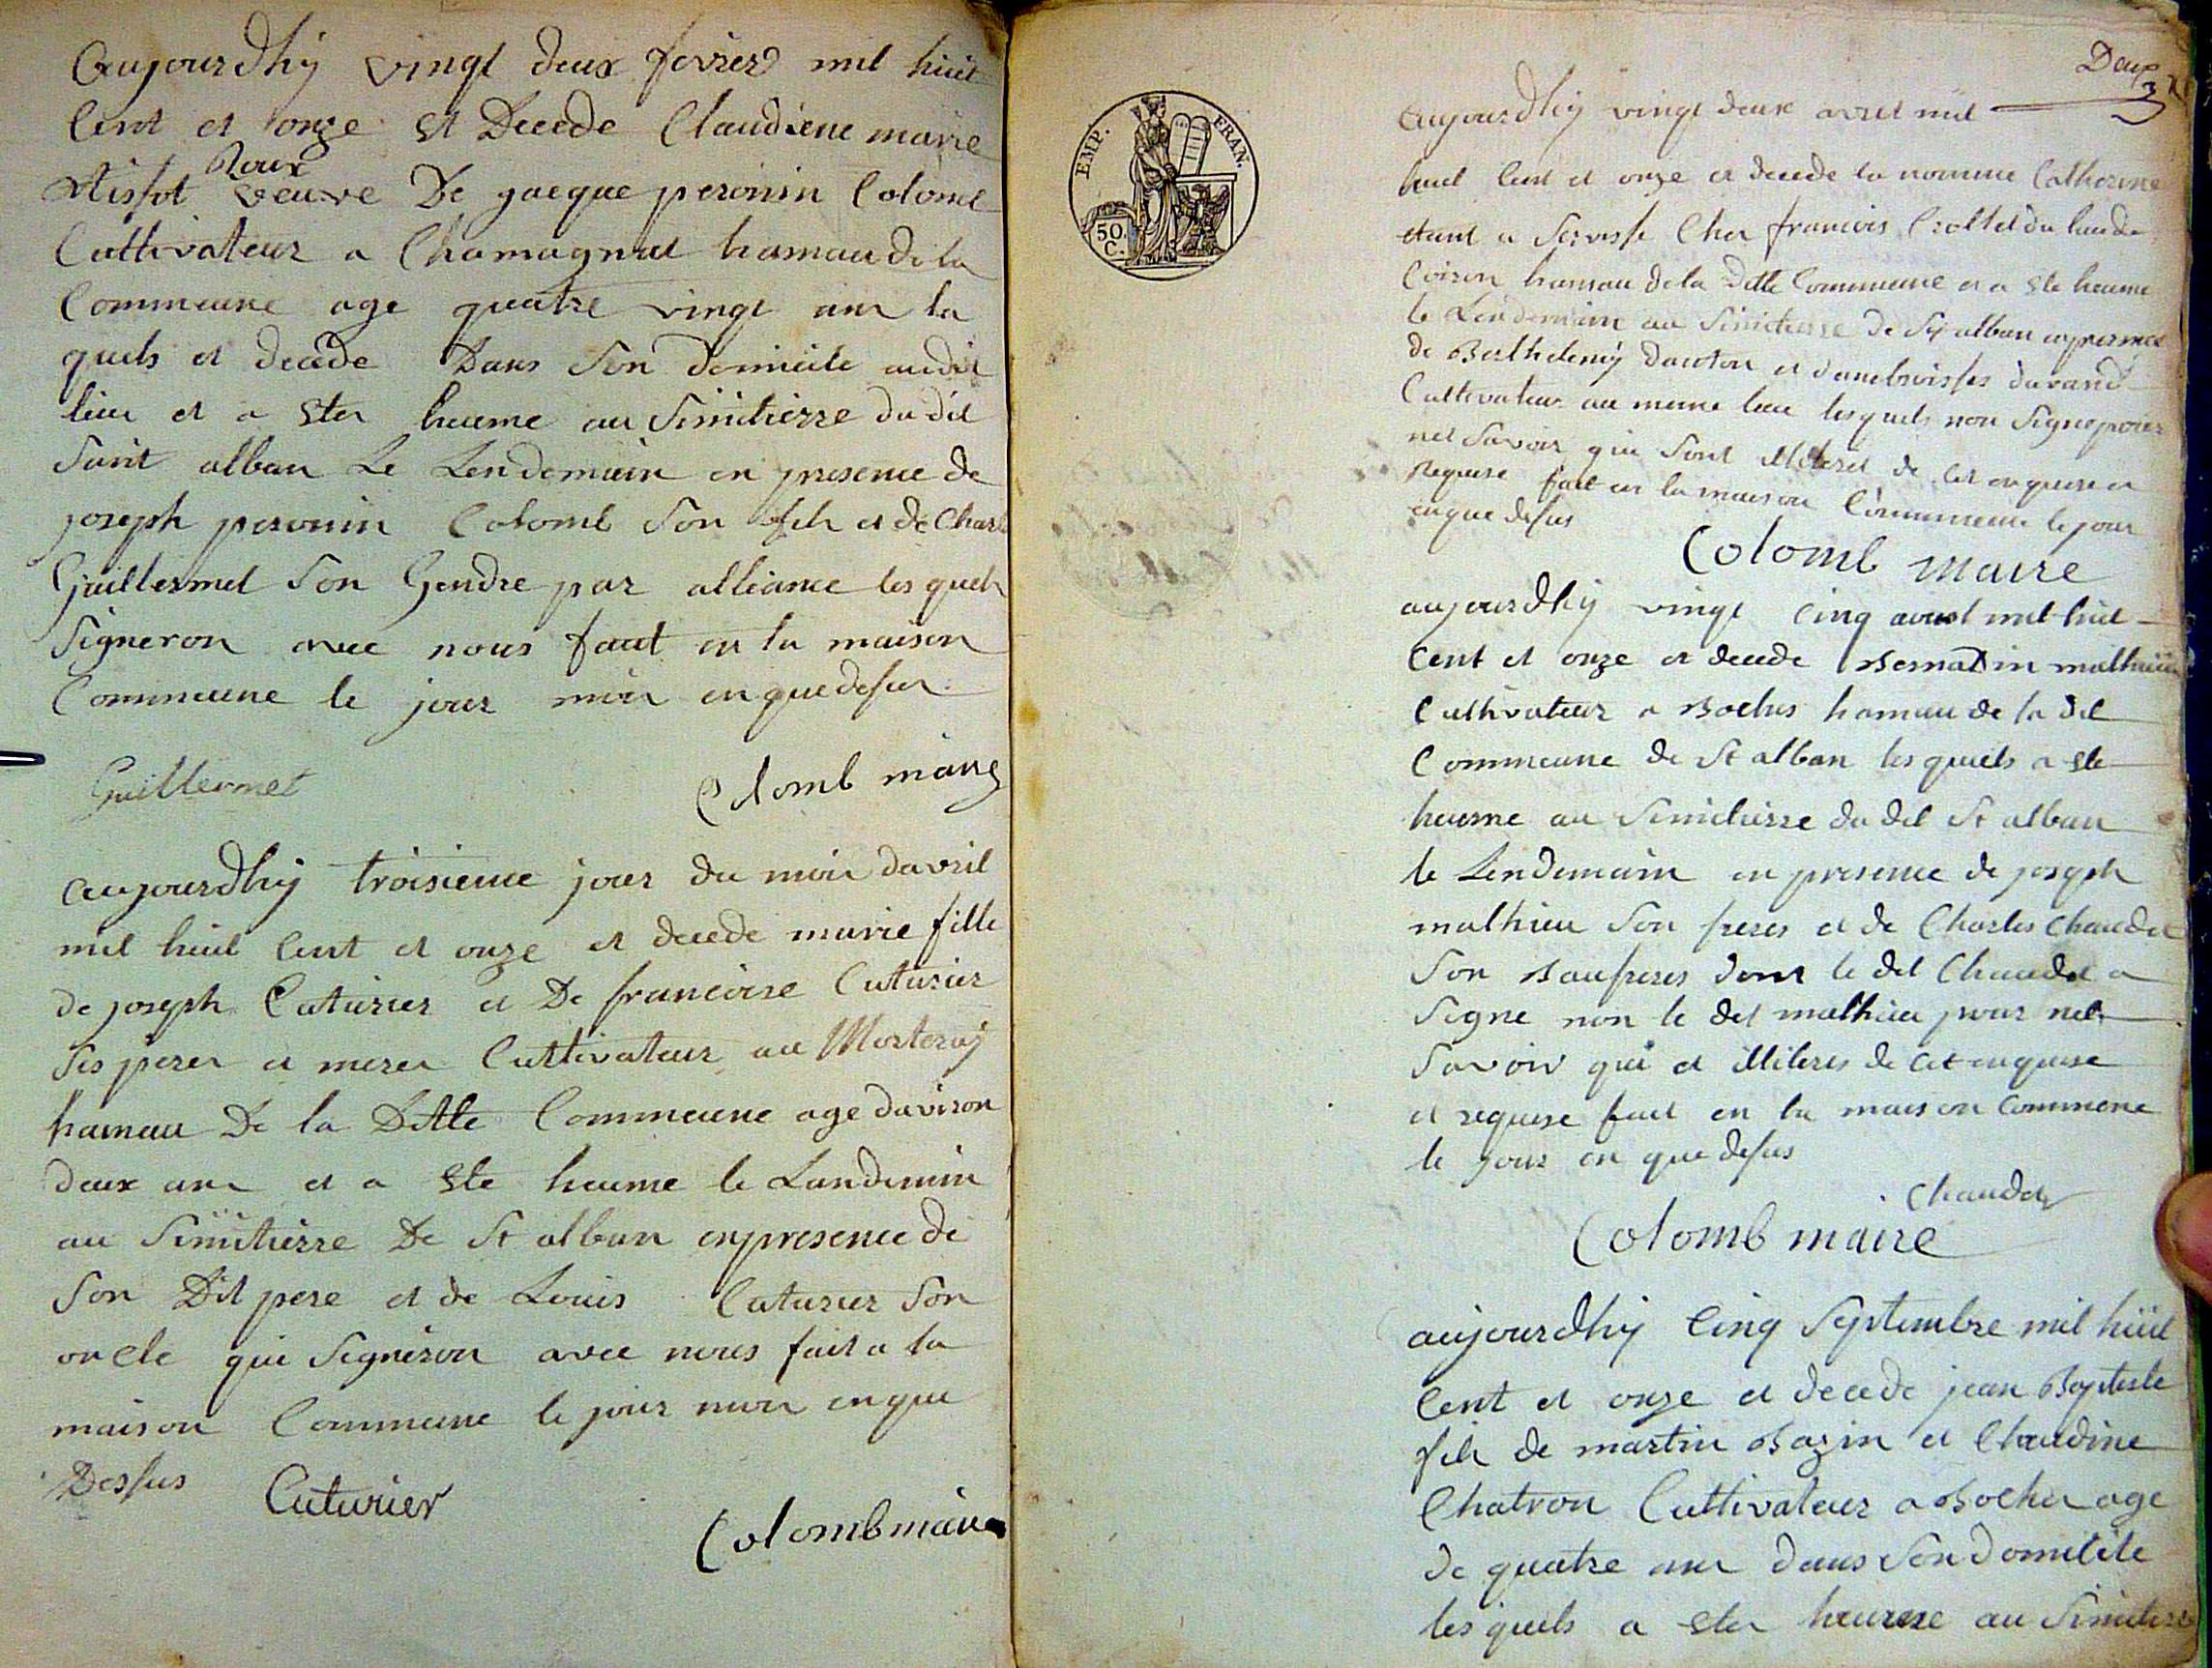 aujourdhÿ vingt deux fevrier mil huit
cent et onze et Decede Claudiene marie
Roux
veuve De jacque peronin Colomb
Cultivateur a Chamagnat hamau de la
Commeune age quatre vingt ans la
quels et decede Dans Son domicile audit
lieu et a ete heume au Simitierre du dit
Saint alban Le Lendemain en presence de
joseph peronin Colomb Son fils et de Charle
Guillermet Son Gendre par alliance lesquels
Signeron avec nous fait en la maison
Commeune le jour mois en que desus
Guillermet
Colomb maire
aujourdhÿ troisieme jour du mois davril
mil huit cent et onze et decede marie fille
de joseph Cuturier et De francoise Cuturier
Ses peres et meres Cultivateur au Morteraÿ
hamau De la Ditte Commeune age daviron
deux ans et a ete heume le Landemin
au Simitierre De St alban en presence de
Son Dit pere et de Louis Cuturier Son
oncle qui Signeron avec nous fait a la
maison Commeune le jour mois en que
Dessus
Cuturier
Colomb maire
Deux
EMP. FRAN.
50. C.
aujourdhÿ vingt deux avril mil
huit cent et onze et decede la nomme Catherine
etant a Servisse Chez francois Crollet du lieu de
Coiron hamau de la ditte Commeune et a ete heume
le Lendemain au Simitierre de St alban en presence
de Barthelemÿ dauton et durand
Cultivateur au meme lieu lesquels non Signe pour
net Savoir qui Sont illiteret de cet enquise et
requise fait en la maison Commeune le jour
en que desus
Colomb maire
aujourdhÿ vingt cinq avril mil huit
cent et onze et decede Bernardin mathieu
Cultivateur a Boches hamau de la dit
Commeune de St alban lesquels a ete
heume au Simitierre du dit St alban
le Lendemain en presence de joseph
mathieu Son freres et de Charles Chaudet
Son Baufreres dont le dit Chaudet a
Signe non le dit mathieu pour net
Savoir qui et illiteres de cet enquise
et requise fait en la maison Commene
le jour en que desus
Chaudet
Colomb maire
aujourdhÿ cinq Septembre mil huit
cent et onze et decede jean Baptiste
fils de martin Bozin et Claudine
Chatron Cultivateur a Boches age
de quatre ans dans Son domicile
lesquels a ete heume au Simitierre